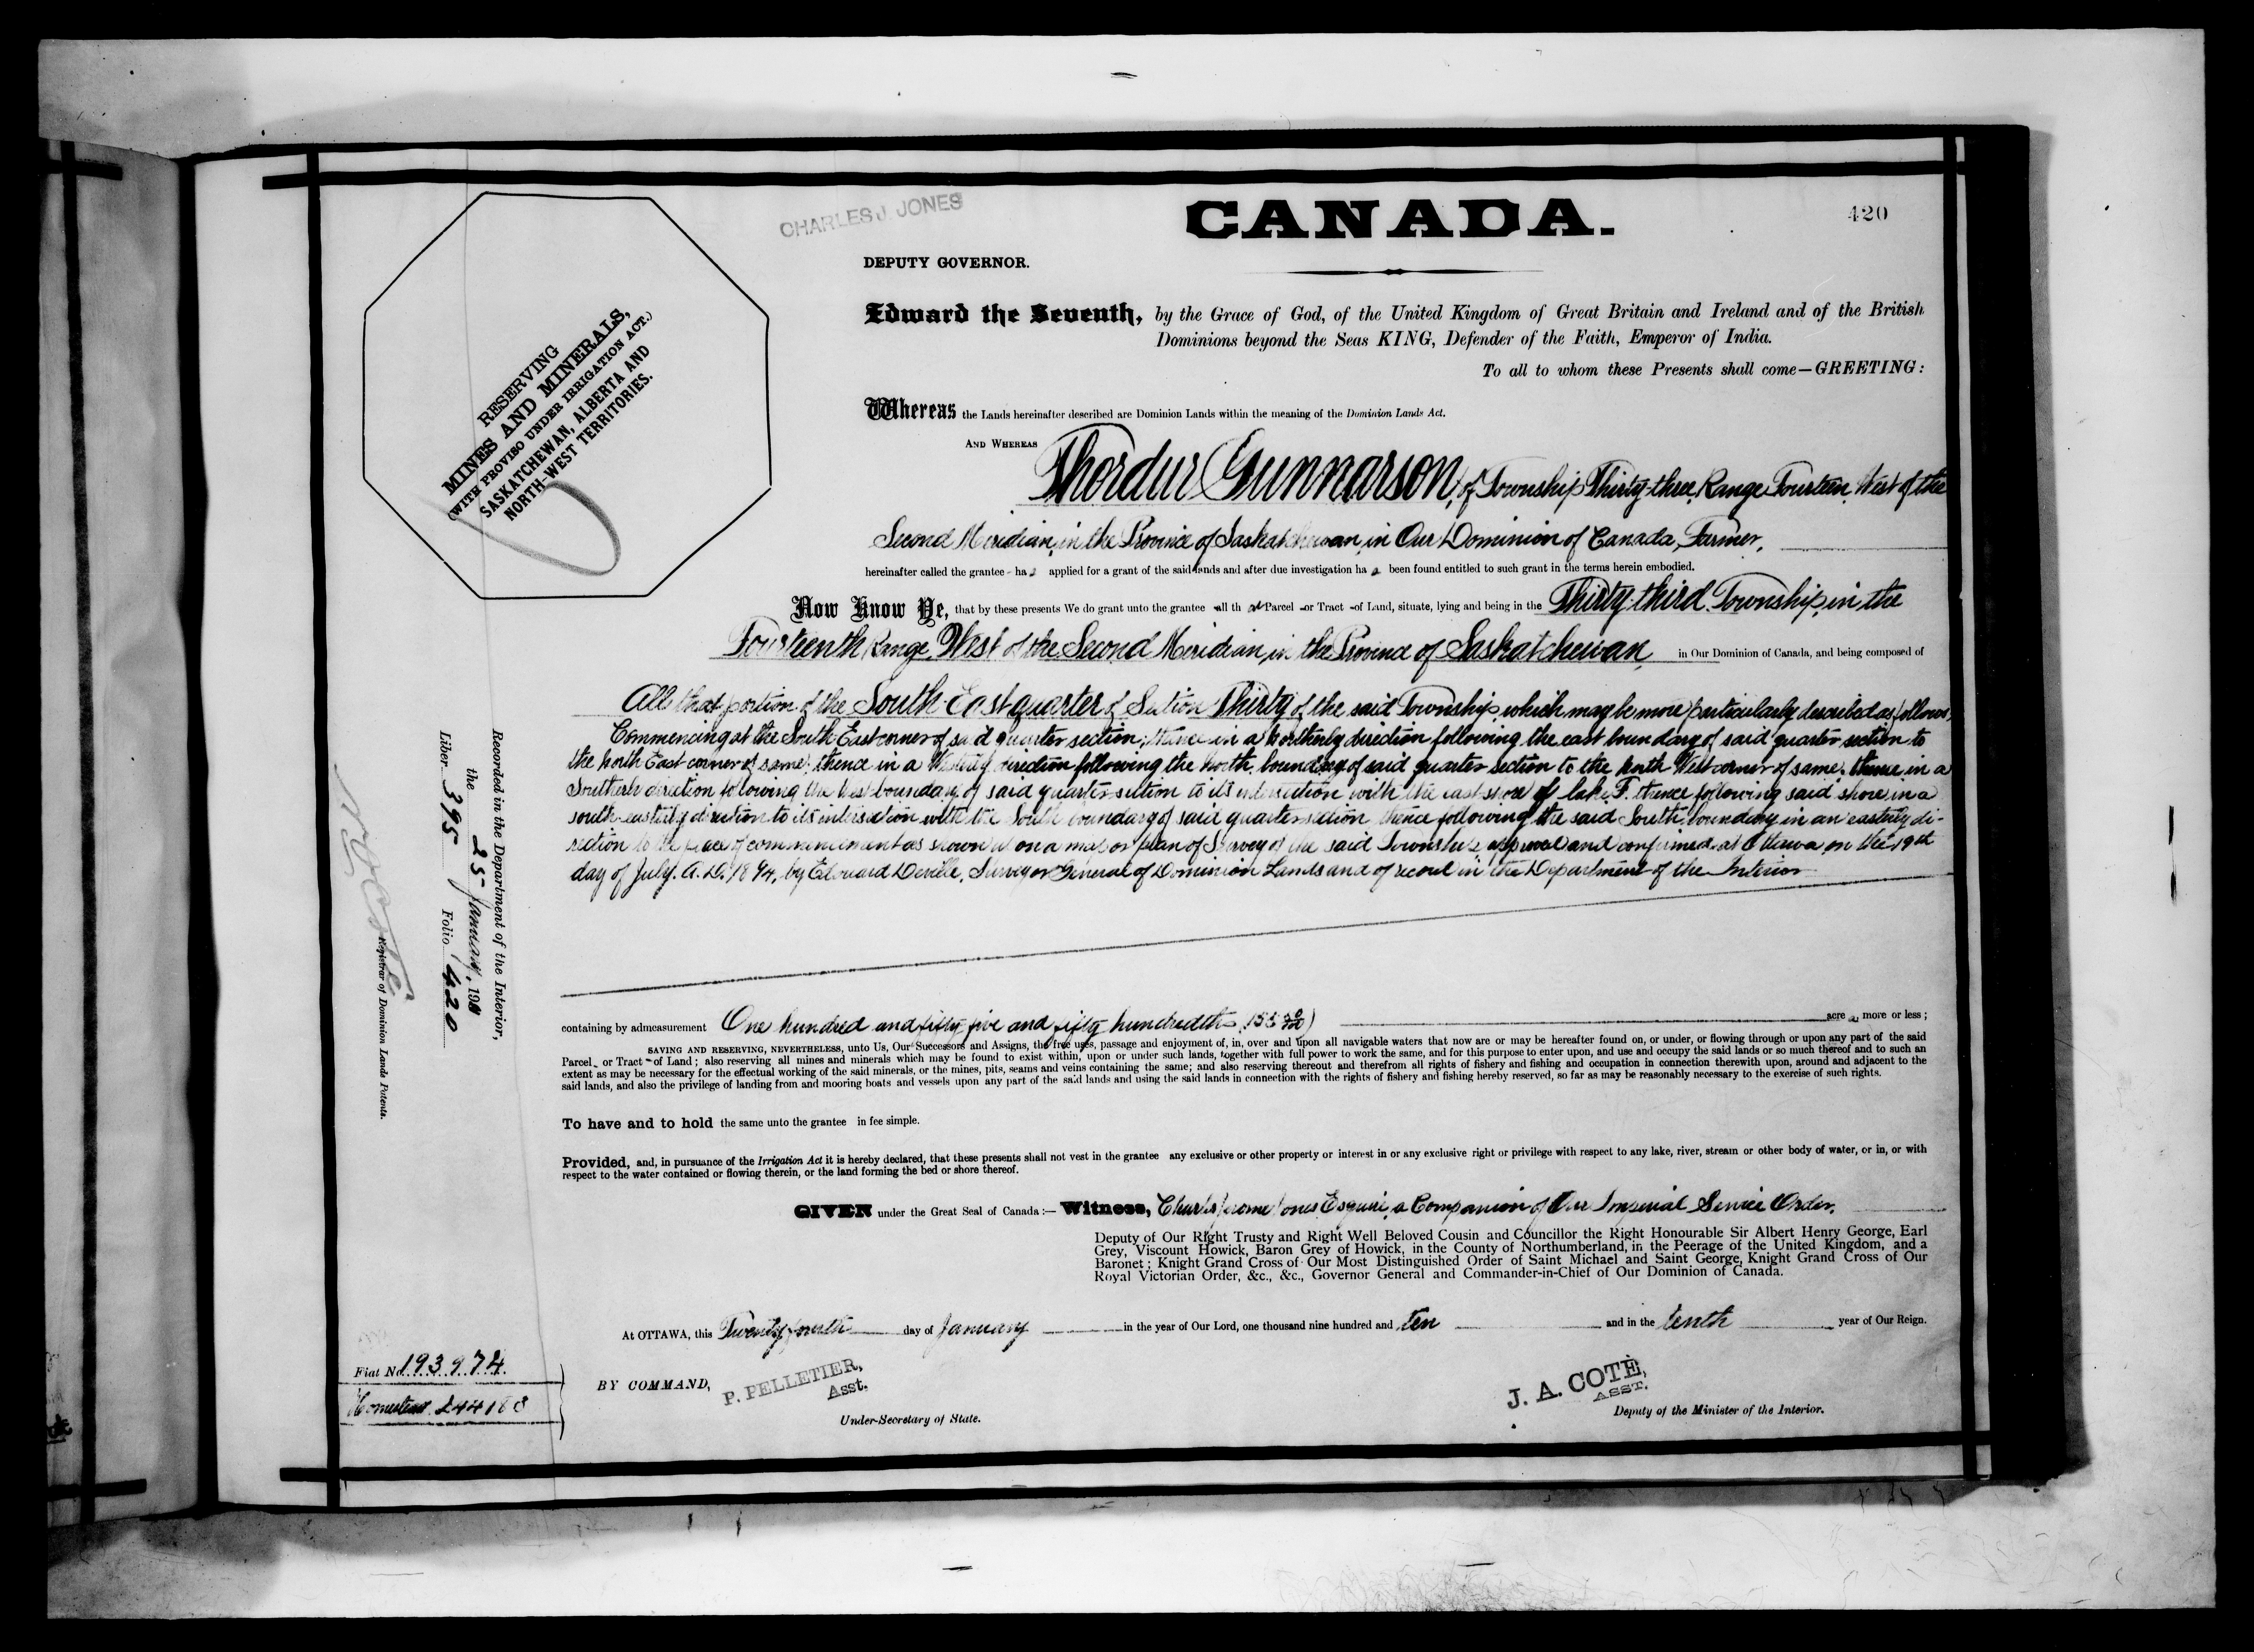 CANADA.
420
CHARLES J. JONES
DEPUTY GOVERNOR.
Edward the Seventh, by the Grace of God, of the United Kingdom of Great Britain and Ireland and of the British
Dominions beyond the Seas KING, Defender of the Faith, Emperor of India.
To all to whom these Presents shall come—GREETING:
RESERVING
MINES AND MINERALS,
(WITH PROVISO UNDER IRRIGATION ACT.)
SASKATCHEWAN, ALBERTA AND
NORTH-WEST TERRITORIES.
Whereas the Lands hereinafter described are Dominion Lands within the meaning of the Dominion Lands Act.
AND WHEREAS Thordur Gunnarson, of Township Thirty-three, Range Fourteen, West of the
Second Meridian, in the Province of Saskatchewan, in Our Dominion of Canada, Farmer,
hereinafter called the grantee has applied for a grant of the said lands and after due investigation has been found entitled to such grant in the terms herein embodied.
Now Know Ye, that by these presents We do grant unto the grantee all that Parcel or Tract of Land, situate, lying and being in the Thirty-third Township, in the
Fourteenth Range, West of the Second Meridian, in the Province of Saskatchewan, in Our Dominion of Canada, and being composed of
All that portion of the South East quarter of Section Thirty of the said Township, which may be more particularly described as follows,
Commencing at the South East corner of said quarter section; thence in a northerly direction following the east boundary of said quarter section to
the North East corner of same; thence in a Westerly direction following the North boundary of said quarter section to the North West corner of same; thence in a
Southerly direction following the West boundary of said quarter section to its intersection with the east shore of lake F. thence following said shore in a
south-easterly direction to its intersection with the South boundary of said quarter section thence following the said South boundary in an easterly di-
rection to the place of commencement as shown on a map or plan of Survey of the said Township approved and confirmed at Ottawa on the 19th
day of July. A.D. 1894, by Edouard Deville, Surveyor General of Dominion Lands and of record in the Department of the Interior
containing by admeasurement One hundred and fifty-five and fifty hundredths (155 50/100) acres more or less;
SAVING AND RESERVING, NEVERTHELESS, unto Us, Our Successors and Assigns, the free uses, passage and enjoyment of, in, over and upon all navigable waters that now are or may be hereafter found on, or under, or flowing through or upon any part of the said
Parcel or Tract of Land; also reserving all mines and minerals which may be found to exist within, upon or under such lands, together with full power to work the same, and for this purpose to enter upon, and use and occupy the said lands or so much thereof and to such an
extent as may be necessary for the effectual working of the said minerals, or the mines, pits, seams and veins containing the same; and also reserving thereout and therefrom all rights of fishery and fishing and occupation in connection therewith upon, around and adjacent to the
said lands, and also the privilege of landing from and mooring boats and vessels upon any part of the said lands and using the said lands in connection with the rights of fishery and fishing hereby reserved, so far as may be reasonably necessary to the exercise of such rights.
To have and to hold the same unto the grantee in fee simple.
Provided, and, in pursuance of the Irrigation Act it is hereby declared, that these presents shall not vest in the grantee any exclusive or other property or interest in or any exclusive right or privilege with respect to any lake, river, stream or other body of water, or in, or with
respect to the water contained or flowing therein, or the land forming the bed or shore thereof.
GIVEN under the Great Seal of Canada:— Witness, Charles Jerome Jones Esquire, a Companion of Our Imperial Service Order.
Deputy of Our Right Trusty and Right Well Beloved Cousin and Councillor the Right Honourable Sir Albert Henry George, Earl
Grey, Viscount Howick, Baron Grey of Howick, in the County of Northumberland, in the Peerage of the United Kingdom, and a
Baronet; Knight Grand Cross of Our Most Distinguished Order of Saint Michael and Saint George, Knight Grand Cross of Our
Royal Victorian Order, &c., &c., Governor General and Commander-in-Chief of Our Dominion of Canada.
At OTTAWA, this Twenty fourth day of January in the year of Our Lord, one thousand nine hundred and ten and in the tenth year of Our Reign.
BY COMMAND,
P. PELLETIER,
Asst.
Under-Secretary of State.
J. A. COTÉ,
ASST.
Deputy of the Minister of the Interior.
Recorded in the Department of the Interior,
the 25 January, 191
Liber 395 Folio 420
Registrar of Dominion Lands Patents.
Fiat No 193974.
Homestead